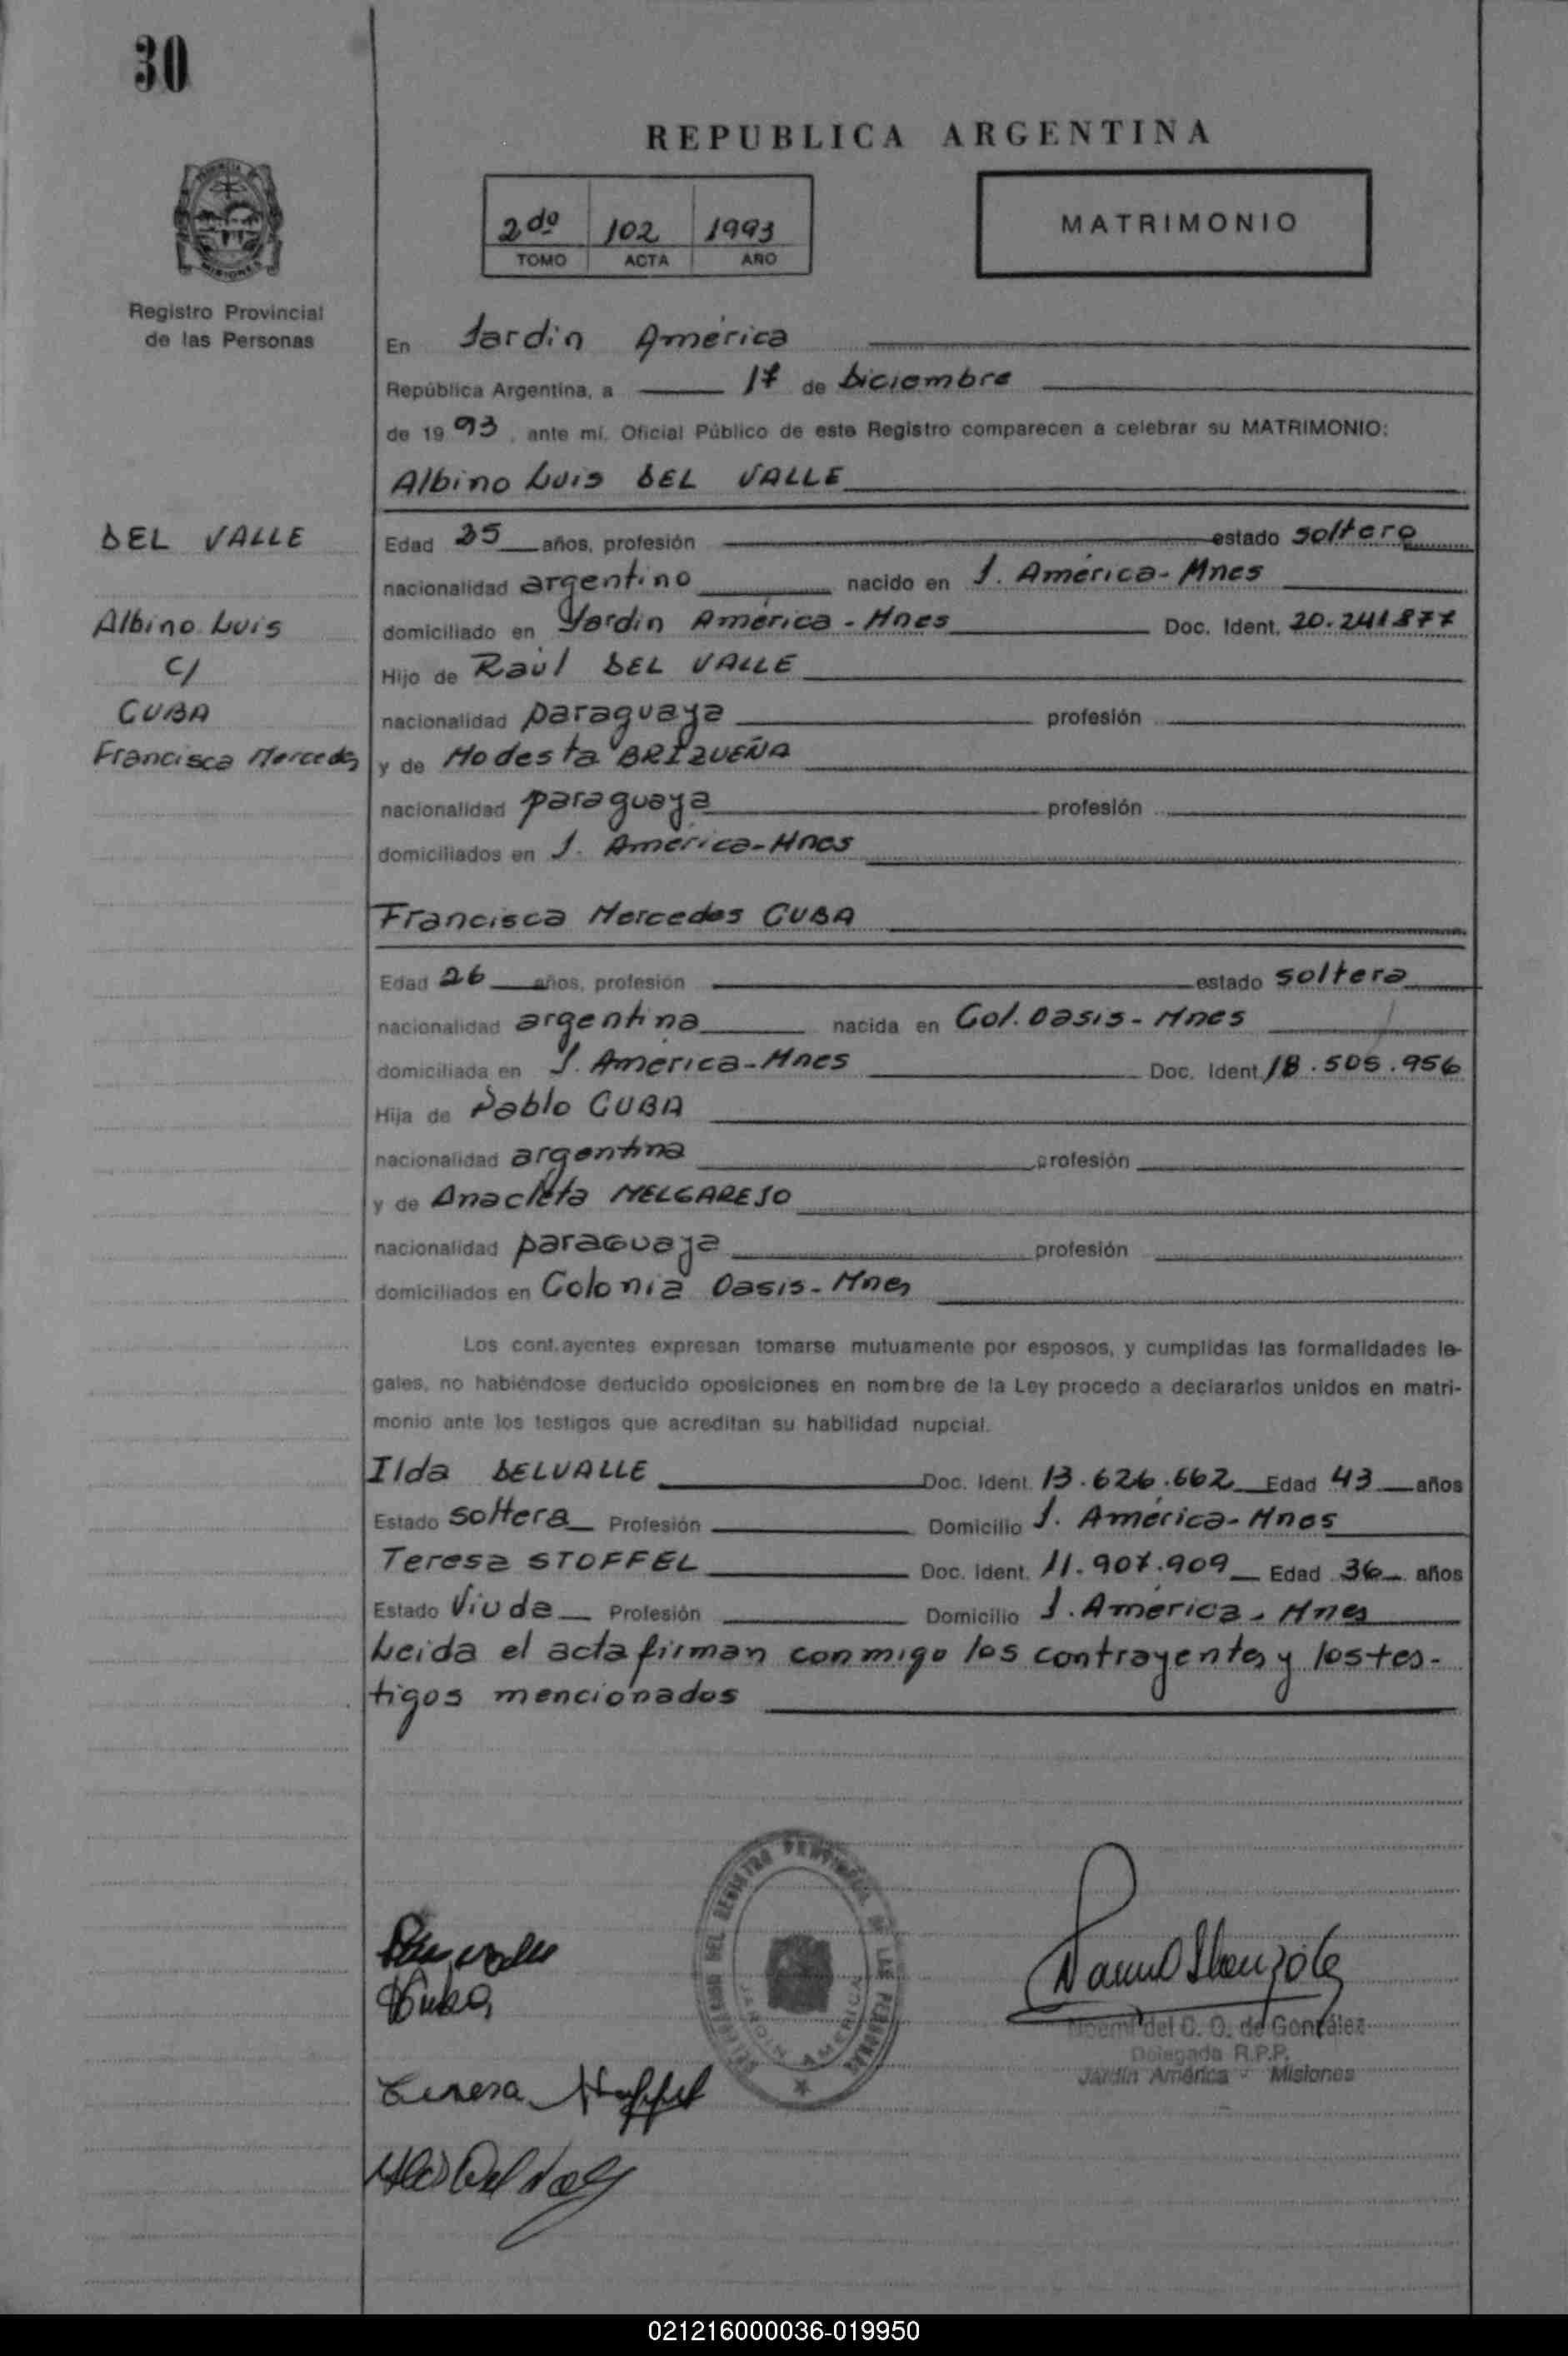 30
REPUBLICA ARGENTINA
2do 102 1993
TOMO ACTA AÑO
MATRIMONIO
Registro Provincial
de las Personas
En Jardin América
República Argentina, a 17 de Diciembre
de 1993, ante mí, Oficial Público de este Registro comparecen a celebrar su MATRIMONIO:
Albino Luis DEL VALLE
DEL VALLE
Albino Luis
C/
CUBA
Francisca Mercedes
Edad 25 años, profesión estado soltero
nacionalidad argentino nacido en J. América-Mnes
domiciliado en Jardin América - Mnes Doc. Ident. 20.241877
Hijo de Raúl DEL VALLE
nacionalidad paraguaya profesión
y de Modesta BRIZUEÑA
nacionalidad paraguaya profesión
domiciliados en J. América-Mnes
Francisca Mercedes CUBA
Edad 26 años, profesión estado soltera
nacionalidad argentina nacida en Col. Oasis - Mnes
domiciliada en J. América-Mnes Doc. Ident. 18.505.956
Hija de Pablo CUBA
nacionalidad argentina profesión
y de Anacleta MELGAREJO
nacionalidad paraguaya profesión
domiciliados en Colonia Oasis - Mnes
Los contrayentes expresan tomarse mutuamente por esposos, y cumplidas las formalidades le-
gales, no habiéndose deducido oposiciones en nombre de la Ley procedo a declararlos unidos en matri-
monio ante los testigos que acreditan su habilidad nupcial.
Ilda DELVALLE Doc. Ident. 13.626.662 Edad 43 años
Estado soltera Profesión Domicilio J. América-Mnes
Teresa STOFFEL Doc. Ident. 11.907.909 Edad 36 años
Estado Viuda Profesión Domicilio J. América - Mnes
Leida el acta firman conmigo los contrayentes y los tes-
tigos mencionados
JARDIN AMERICA
Teresa Stoffel
Noemí del C. O. de González
Delegada R.P.P.
Jardín América - Misiones
021216000036-019950